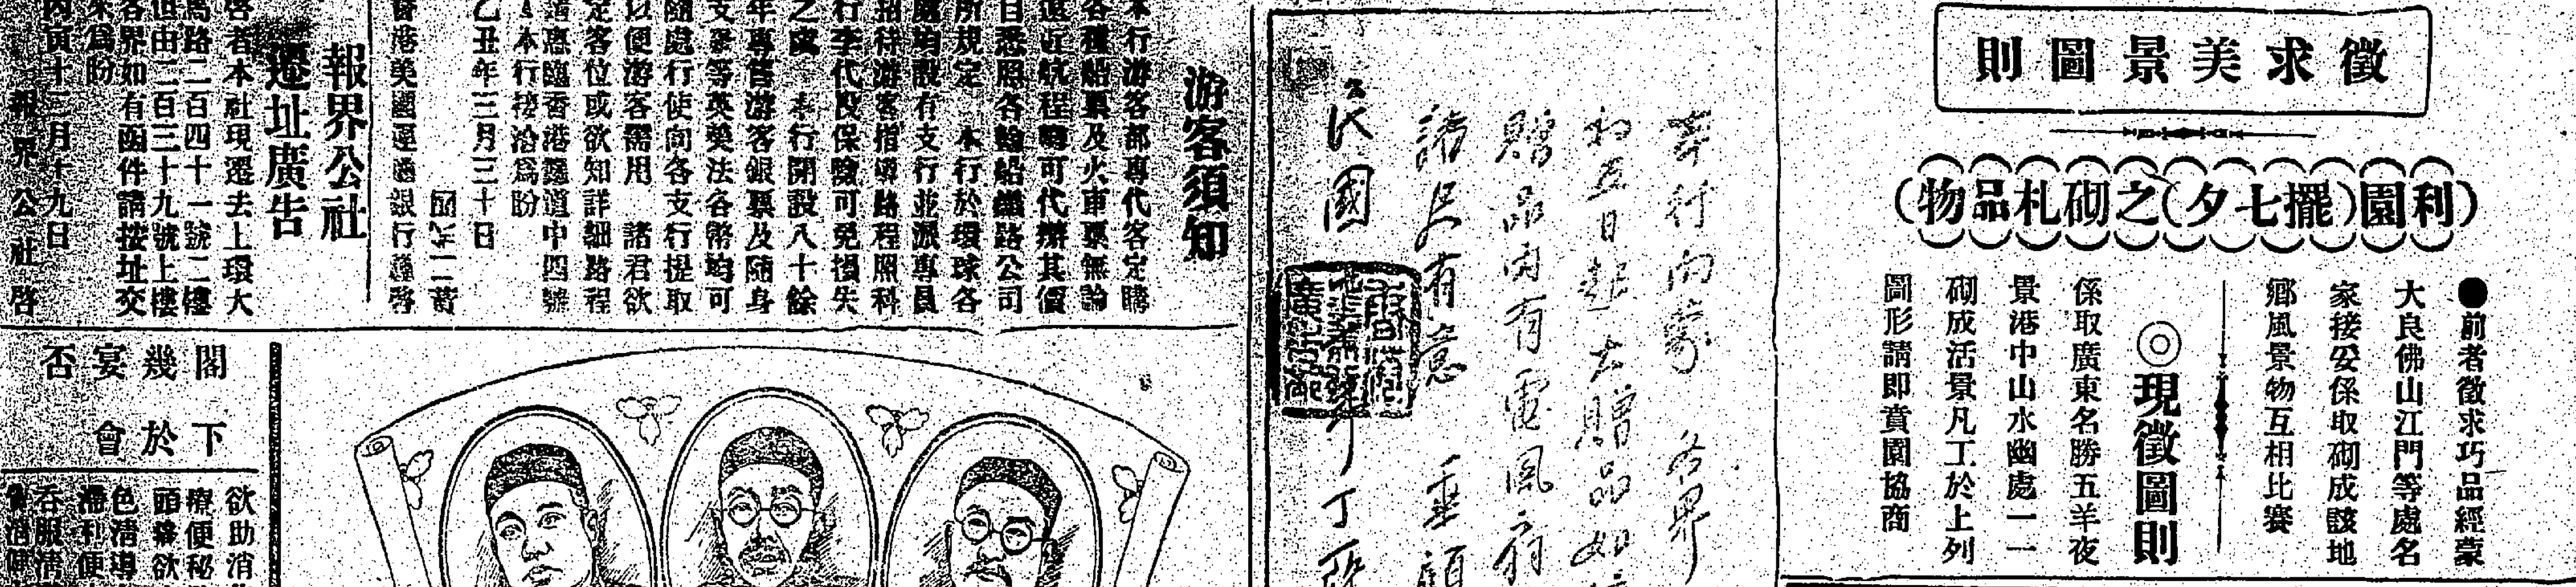 徵求美景圖則
(利園(擺七夕)之砌札品物)
●前者徵求巧品經蒙
大良佛山江門等處名
家接妥係取砌成該地
鄉風景物互相比賽
◎現徵圖則
係取廣東名勝五羊夜
景港中山水幽處一一
砌成活景凡工於上列
圖形請即賁園協商
行向蒙 各界
初五日起大贈品如
贈品內有電風扇
諸君有意 垂顧
民國
游客須知
本行游客部專代客定購
各種船票及火車票無論
遠近航程均可代辦其價
目悉照各輪船鐵路公司
所規定 本行於環球各
處均設有支行並派專員
招待游客指導路程照科
行李代投保險可免損失
之虞 本行開設八十餘
年專售游客銀票及隨身
支票等英美法各幣均可
隨處行使向各支行提取
以便游客需用 諸君欲
定客位或欲知詳細路程
請惠臨香港遮道中四號
本行接洽為盼
乙丑年三月三十日
香港美國運通銀行謹啓
報界公社
遷址廣告
啓者本社現遷去上環大
馬路二百四十一號二樓
但由二百三十九號上樓
各界如有函件請按址交
來為盼
丙寅十二月十九日
報界公社啓
閣下
幾於
宴會
否
欲助消
療便秘
頭
色清導
滯利便
吞服清